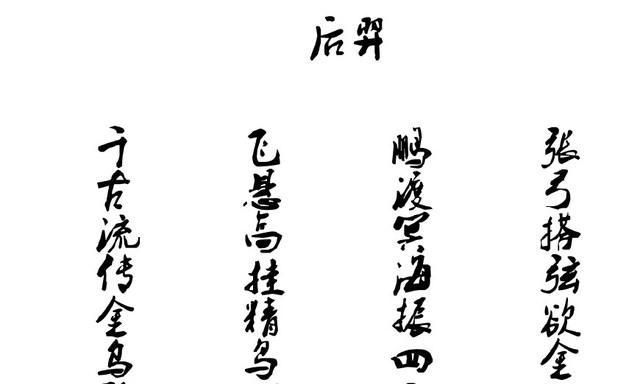 后羿
张弓搭弦欲金
鹏渡冥海振四
飞悬高挂精鸟
千古流传金乌